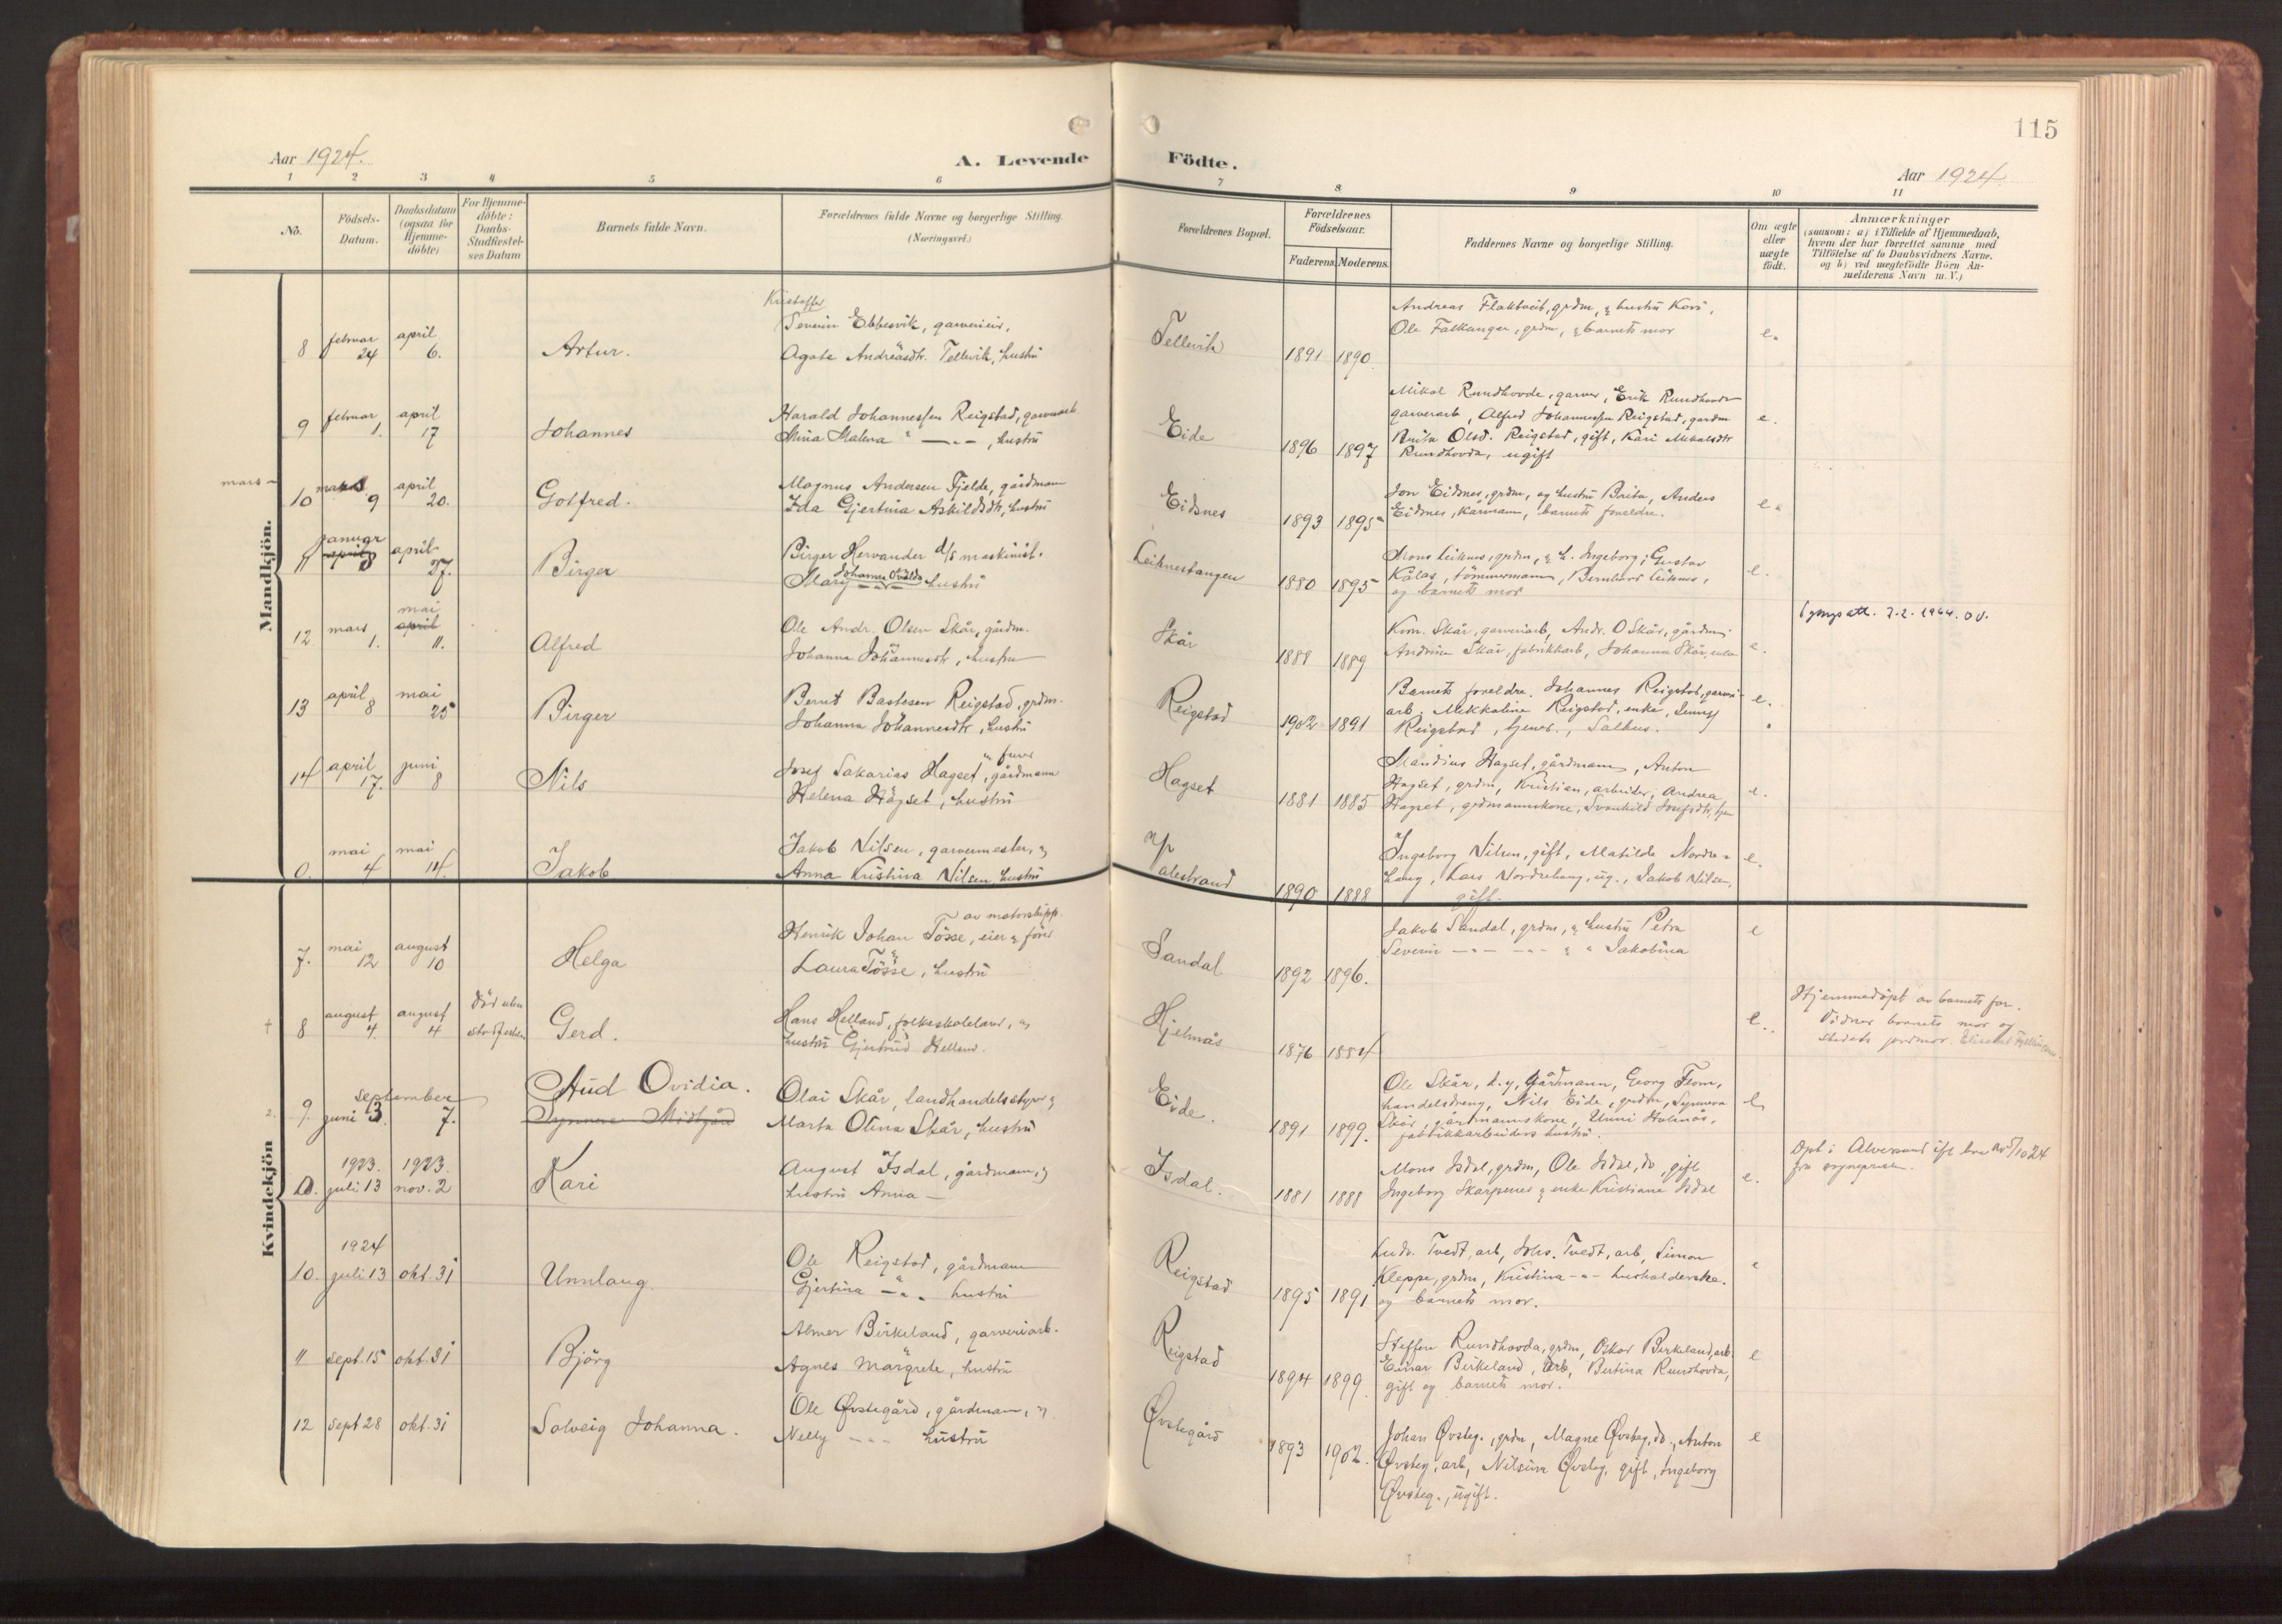 115
Aar 1924.
A. Levende
Födte.
Aar 1924.
1 2 3 4 5 6 7 8 9 10 11
No.
Födsels-
Datum.
Daabsdatum
(ogsaa for
Hjemme-
döbte)
For Hjemme-
döbte:
Daabs-
Stadfæstel-
ses Datum
Barnets fulde Navn.
Forældrenes fulde Navne og borgerlige Stilling.
(Næringsvei.)
Forældrenes Bopæl.
Forældrenes
Födselsaar.
Faderens. Moderens.
Faddernes Navne og borgerlige Stilling.
Om ægte
eller
uægte
födt.
Anmærkninger
(saasom: a) i Tilfælde af Hjemmedaab,
hvem der har forrettet samme med
Tilföielse af to Daabsvidners Navne.
og b) ved uægtefödte Börn An-
melderens Navn m.V.)
Mandkjön.
8 februar 24 april 6. Artur.
Kristoffer
Severin Ebbesvik, garveriarb.
Agate Andreasdtr. Tellevik, hustru
Tellevik 1891 1890.
Andreas Flaktveit, grdm, & hustru Kari,
Ole Falkanger, grdm, & barnets mor
e.
9 februar 1. april 17 Johannes
Harald Johannessen Reigstad, garveriarb.
Mina Malena " —"— , hustru
Eide 1896 1897
Mikal Rundhovde, garver, Erik Rundhovde
garverarb, Alfred Johannessen Reigstad, gardm
Brita Olsd. Reigstad, gift, Kari Mikalsdtr
Rundhovda, ugift
e.
mars —
10 mars 9 april 20. Gotfred.
Magnus Andersen Fjelde, gårdmann
Ida Gjertina Askildsdtr, hustru
Eidsnes 1893 1895
Jon Eidsnes, grdm, og hustru Brita, Anders
Eidsnes, kårmann, barnets foreldre.
e.
11 januar april 8 april 27. Birger
Birger Hervander d/s maskinist.
Johanna Ovidia
Mary —"— hustru
Leiknestangen 1880 1895
Mons Leiknes, grdm, & h. Ingeborg; Gustav
Kålås, tömmermann, Bernhard Leiknes,
og barnets mor
e.
12 mars 1. mai april 11. Alfred
Ole Andr. Olsen Skår, gårdm.
Johanna Johannesdtr, hustru
Skår 1888 1889
Korn. Skår, garveriarb, Andr. O Skår, gårdm;
Andrina Skår, fabrikkarb, Johanna Skår, enke
e.
7.2.1944. OV.
13 april 8 mai 25 Birger
Bernt Bastesen Reigstad, grdm.
Johanna Johannesdtr, hustru
Reigstad 1902 1891
Barnets foreldre. Johannes Reigstad, garveri-
arb. Mikkaline Reigstad, enke, Jenny
Reigstad, tjener., Salhus.
e.
14 april 17. juni 8 Nils
Josef Sakarias Hagset, gårdmann
Helena Hagset, hustru
Hagset 1881 1885
Mandius Hagset, gårdmann, Anton
Hagset, grdm, Kristian, arbeider, Andrea
Hagset, grdmannskone, Svanhild Josefsdtr,
e.
0. mai 4 mai 14. Jakob
Jakob Nilsen, garvermester, &
Anna Kristina Nilsen, hustru
Valestrand 1890 1888
Ingeborg Nilsen, gift, Matilde Nordre-
haug, Lars Nordrehaug, ug., Jakob Nilsen,
gift.
e.
Kvindekjön
7. mai 12 august 10 Helga
av motorskipp.
Henrik Johan Tösse, eier & förer
Laura Tösse, hustru
Sandal 1892 1896.
Jakob Sandal, grdm, & hustru Petra
Severin —"— —"— & " Jakobina
e
† 8 august 4. august 4 Död uten stadfesten Gerd.
Hans Helland, folkeskolelærer, &
hustru Gjertrud Helland.
Hjelmås 1876 1884
e.
Hjemmedöpt av barnets far.
Vidner barnets mor og
stedets jordmor.
2. 9. juni 3. september 7. Aud Ovidia.
Synnøve Midtgård
Olai Skår, landhandelsstyrer &
Marta Olina Skår, hustru
Eide. 1891 1899.
Ole Skår, d.y, Gårdmann, Georg From,
handelsdreng, Nils Eide, grdm, Synneva
Skår, gårdmannskone, Unni Holmås,
fabrikkarbeiders hustru.
e
0. 1923. juli 13 1923. nov. 2 Kari
August Isdal, gårdmann, &
hustru Anna —
Isdal. 1881 1888
Mons Isdal, grdm, Ole Isdal, do, gift
Ingeborg Skarpenes & enke Kristiane Isdal
e.
Döpt i Alversund ifl. brev av 5/10 24
fra sognepresten.
10. 1924 juli 13 okt. 31 Unnlaug.
Ole Reigstad, gårdmann
Gjertina —"— hustru
Reigstad 1895 1891
Ludv. Tvedt, arb, Johs. Tvedt, arb, Simon
Kleppe, grdm, Kristina —"— husholderske.
og barnets mor.
e
11 sept. 15 okt. 31 Björg
Almer Birkeland, garveriarb.
Agnes Margrete, hustru
Reigstad 1894 1899.
Steffen Rundhovda, grdm, Oskar Birkeland, arb.
Einar Birkeland, arb, Bertina Rundhovda,
gift og barnets mor.
e
12 sept 28 okt. 31 Solveig Johanna.
Ole Øvstegård, gårdmann, &
Nelly —"— hustru
Øvstegård 1893 1902.
Johan Øvsteg., grdm, Magne Øvsteg, do., Anton
Øvsteg, arb, Nilsina Øvsteg, gift, Ingeborg
Øvsteg., ugift.
e